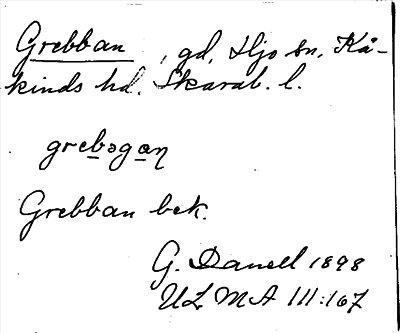 Grebban, gd, Hjo sn, Kå-
kinds hd. Skarab. l.
grebəgan
Grebban bek.
G. Danell 1898
ULMA 111:167